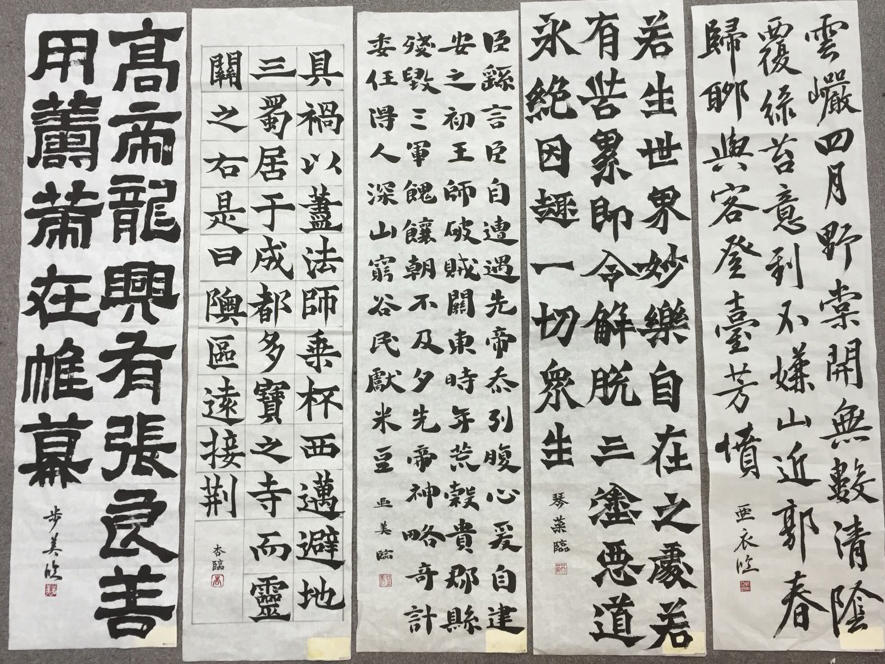 雲巖四月野棠開無數清陰
覆綠苔意到不嫌山近郭春
歸聊與客登臺芳憤
亞衣臨
若生世界妙樂自在之處若
有苦累即令解脫三塗惡道
永絕因趣一切眾生
琴葉臨
臣繇言臣自遭遇先帝忝列腹心爰自建
安之初王師破賊關東時年荒穀貴郡縣
殘毀三軍餽饟朝不及夕先帝神略奇計
委任得人深山窮谷民獻米豆
亞美臨
具禍以藎法師乘杯西邁避地
三蜀居于成都多寶之寺而靈
關之右是曰隩區遠接荆
杏臨
高帝龍興有張良善
用籌策在帷幕
步美臨